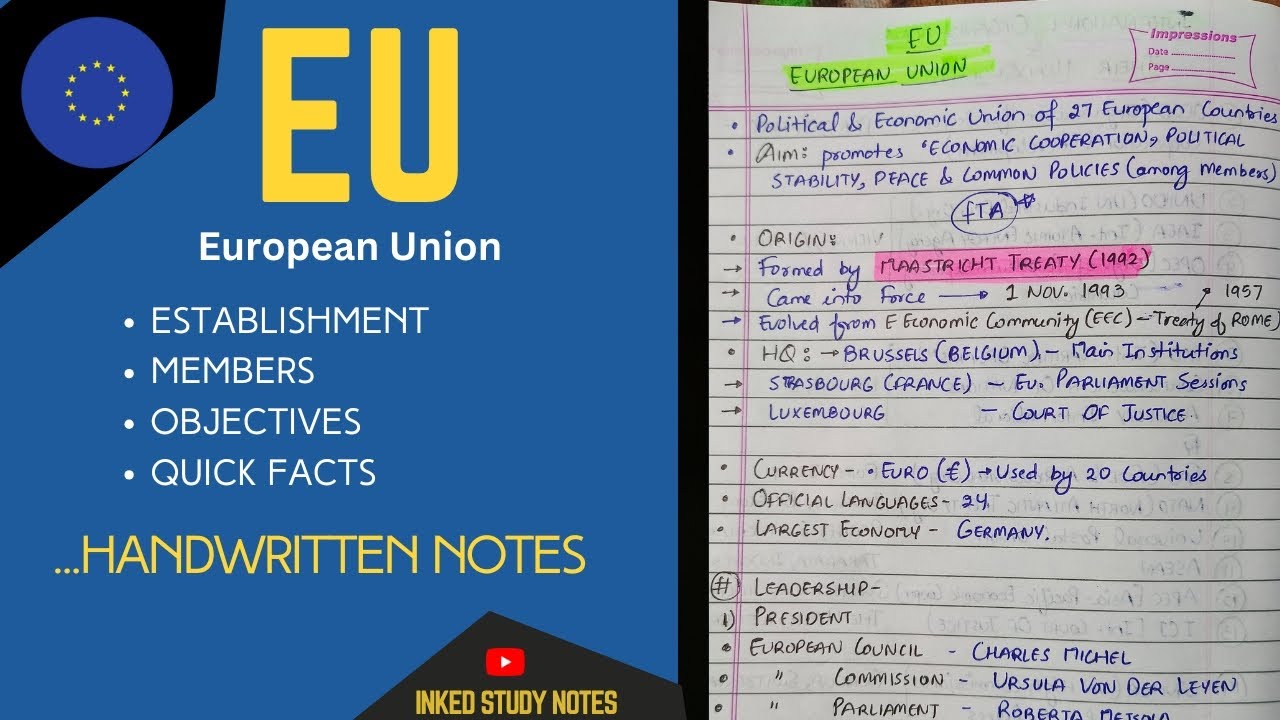 EU
European Union
• ESTABLISHMENT
• MEMBERS
• OBJECTIVES
• QUICK FACTS
...HANDWRITTEN NOTES
INKED STUDY NOTES
Impressions
Date
Page
EU
EUROPEAN UNION
• Political & Economic Union of 27 European Countries
• Aim: promotes "ECONOMIC COOPERATION, POLITICAL
STABILITY, PEACE & COMMON POLICIES (among members)
FTA
• ORIGIN:
→ Formed by MAASTRICHT TREATY (1992)
→ Came into Force → 1 NOV. 1993 1957
→ Evolved from E Economic Community (EEC) - Treaty of ROME)
• HQ: → BRUSSELS (BELGIUM) - Main Institutions
→ STRASBOURG (FRANCE) - EU. PARLIAMENT Sessions
→ LUXEMBOURG - COURT OF JUSTICE
• CURRENCY - • EURO (€) → Used by 20 Countries
• OFFICIAL LANGUAGES - 24.
• LARGEST ECONOMY - GERMANY.
# LEADERSHIP -
1) PRESIDENT
• EUROPEAN COUNCIL - CHARLES MICHEL
• " COMMISSION - URSULA VON DER LEYEN
• " PARLIAMENT - ROBERTA METSOLA